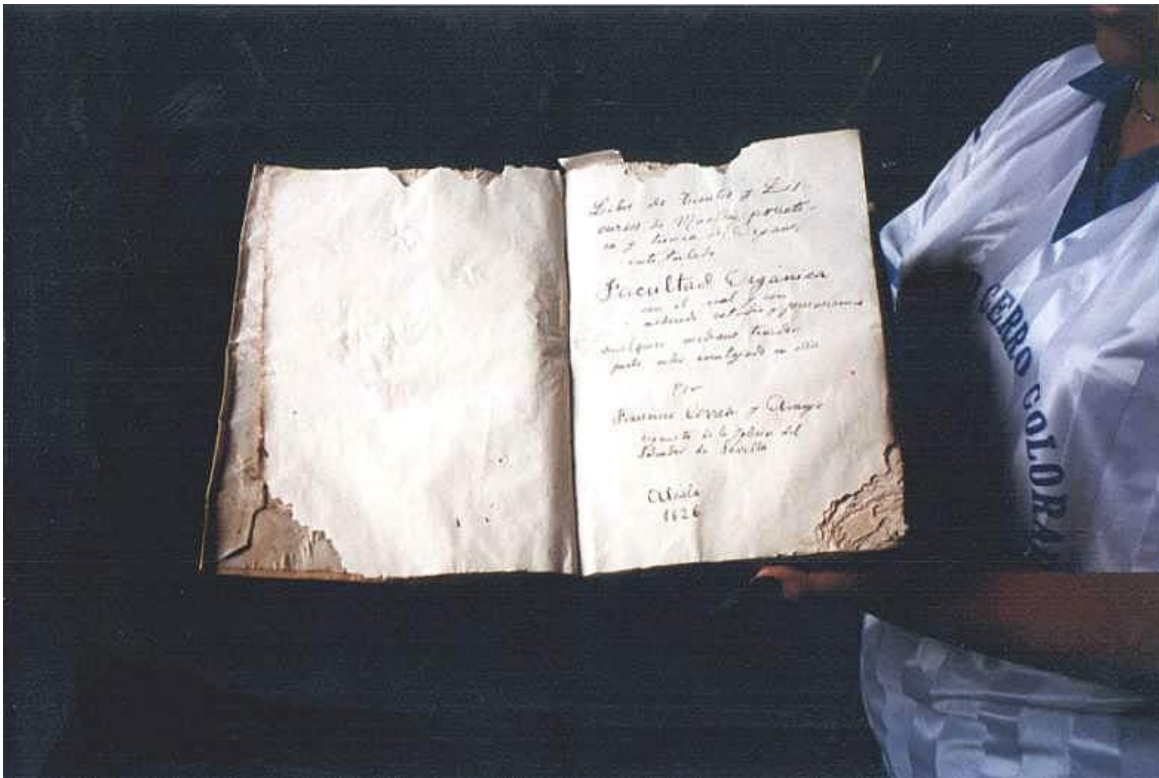 Libro de Tientos y Dis-
cursos de Musica practi-
ca y theorica de organo,
intitulado
Facultad Orgánica
con el qual y con
moderado estudio y perseverancia
cualquier mediano tañedor
puede salir aventajado en ella
Por
Francisco Correa y Arauxo
organista de la Iglesia del
Salvador de Sevilla
Alcalá
1626
CERRO COLORA